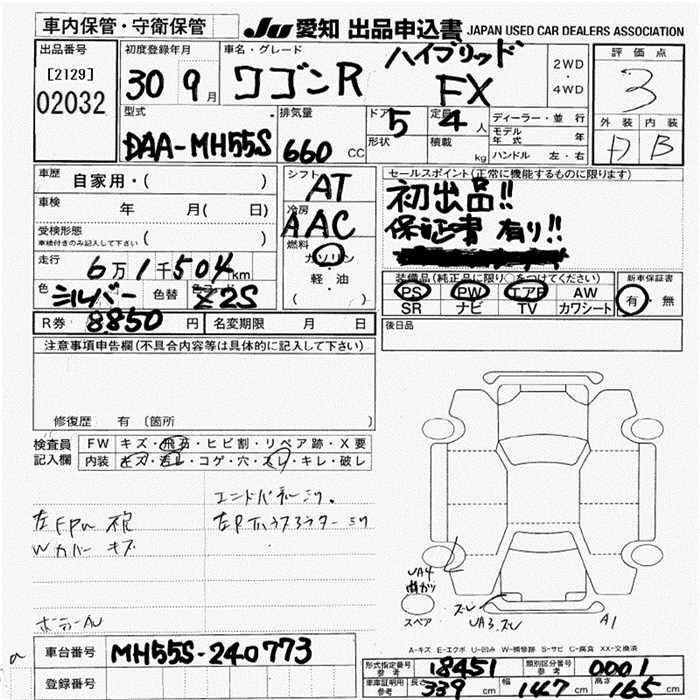 車内保管・守衛保管
JU 愛知 出品申込書 JAPAN USED CAR DEALERS ASSOCIATION
出品番号
[2129]
02032
初度登録年月
30 9月
車名・グレード
ワゴンR ハイブリッド FX
2WD・4WD
評価点
3
外装 内装
B
型式
DAA-MH55S
排気量
660 CC
ドア 5
形状
定員 4 人
積載 kg
ディーラー・並行
モデル年式 年
ハンドル 左・右
車歴 自家用・( )
車検 年 月( 日)
受検形態
車検付きのみ記入して下さい ( )
走行 6万1千504km
色 シルバー 色替 Z2S
シフト AT
冷房 AAC
燃料
ガソリン
軽・油
( )
セールスポイント(正常に機能するものに限ります)
初出品!!
保証書 有り!!
装備品(純正品に限り○をつけてください)
PS PW エアB AW
SR ナビ TV カワシート
新車保証書
有・無
R券 8850円 名変期限 月 日
後日品
注意事項申告欄(不具合内容等は具体的に記入して下さい)
修復歴 有 (箇所 )
検査員記入欄
FW キズ・飛石・ヒビ割・リペア跡・X要
内装 キズ・汚レ・コゲ・穴・スレ・キレ・破レ
Wカバー キズ
UA4
スペア
スレ
UA3.スレ
A1
A-キズ E-エクボ U-凹み W-補修跡 S-サビ C-腐食 XX-交換済
車台番号 MH55S-240773
登録番号
形式指定番号 参考 18451 類別区分番号 参考 0001
車庫証明用 参考 長さ 339 cm 幅 147 cm 高さ 165 cm